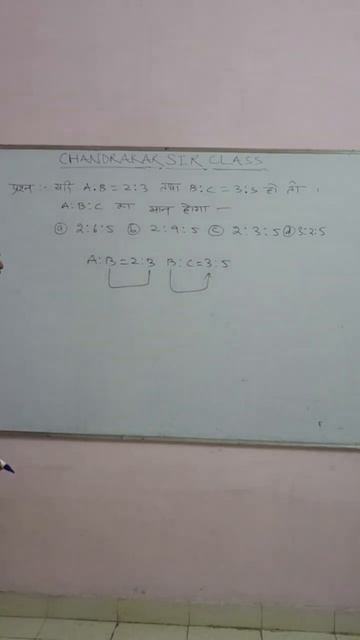 CHANDRAKAR SIR CLASS
प्रश्न :- यदि A:B = 2:3 तथा B:C = 3:5 हो तो ,
A:B:C का मान होगा —
ⓐ 2:6:5 ⓑ 2:9:5 ⓒ 2:3:5 ⓓ 3:2:5
A:B = 2:3 B:C = 3:5